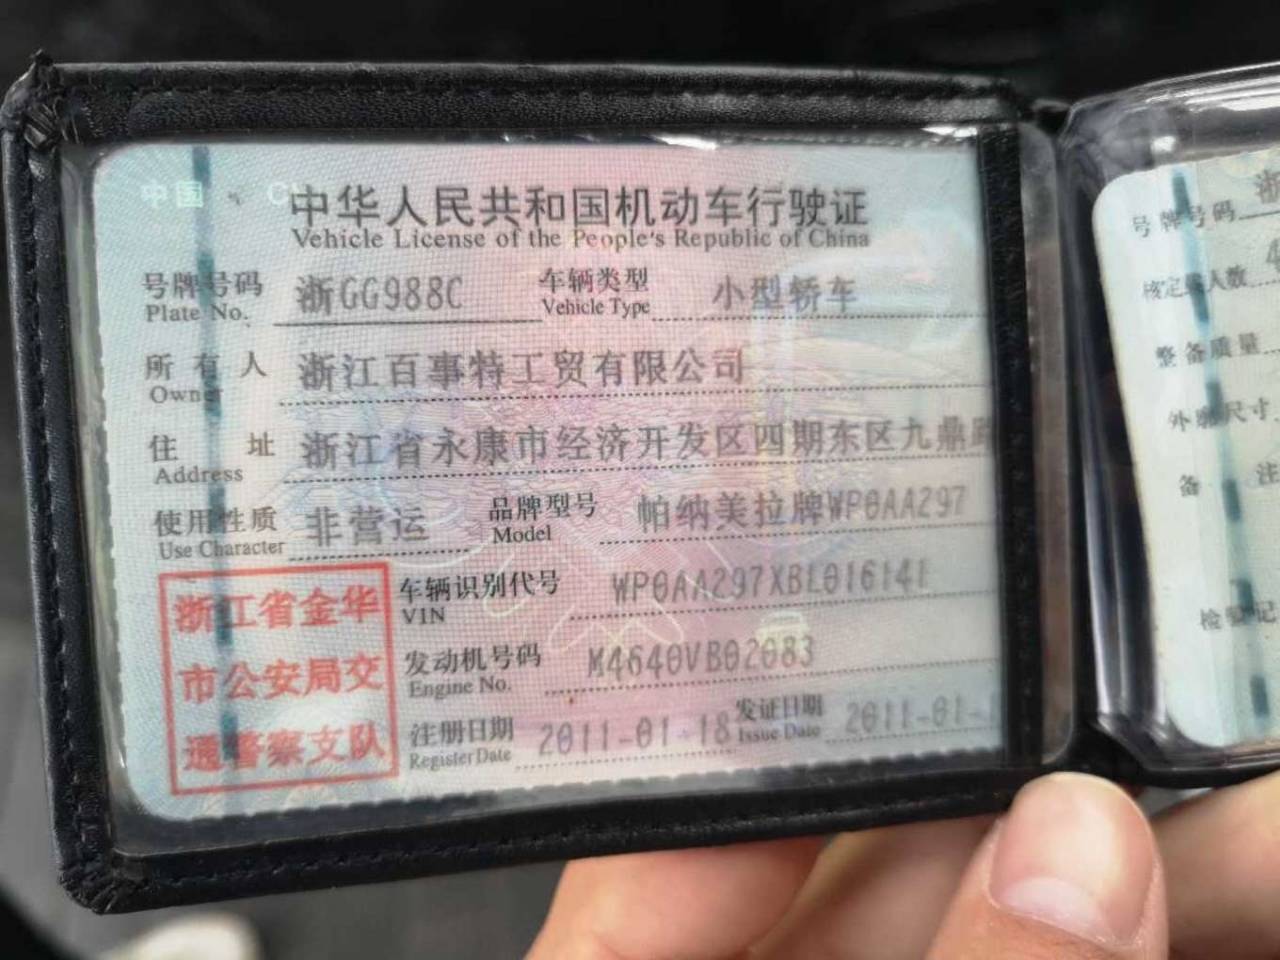 中国
中华人民共和国机动车行驶证
Vehicle License of the People's Republic of China
号牌号码 浙GG988C 车辆类型 小型轿车
Plate No. Vehicle Type
所有人 浙江百事特工贸有限公司
Owner
住址 浙江省永康市经济开发区四期东区九鼎路
Address
使用性质 非营运 品牌型号 帕纳美拉牌WP0AA297
Use Character Model
浙江省金华
市公安局交
通警察支队
车辆识别代号 WP0AA297XBL016141
VIN
发动机号码 M4640VB02083
Engine No.
注册日期 2011-01-18 发证日期 2011-01-
Register Date Issue Date
号牌号码 浙
核定载人数 4
整备质量
外廓尺寸
备注
检验记